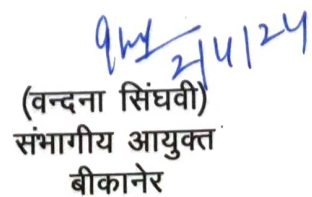 2/4/24
(वन्दना सिंघवी)
संभागीय आयुक्त
बीकानेर